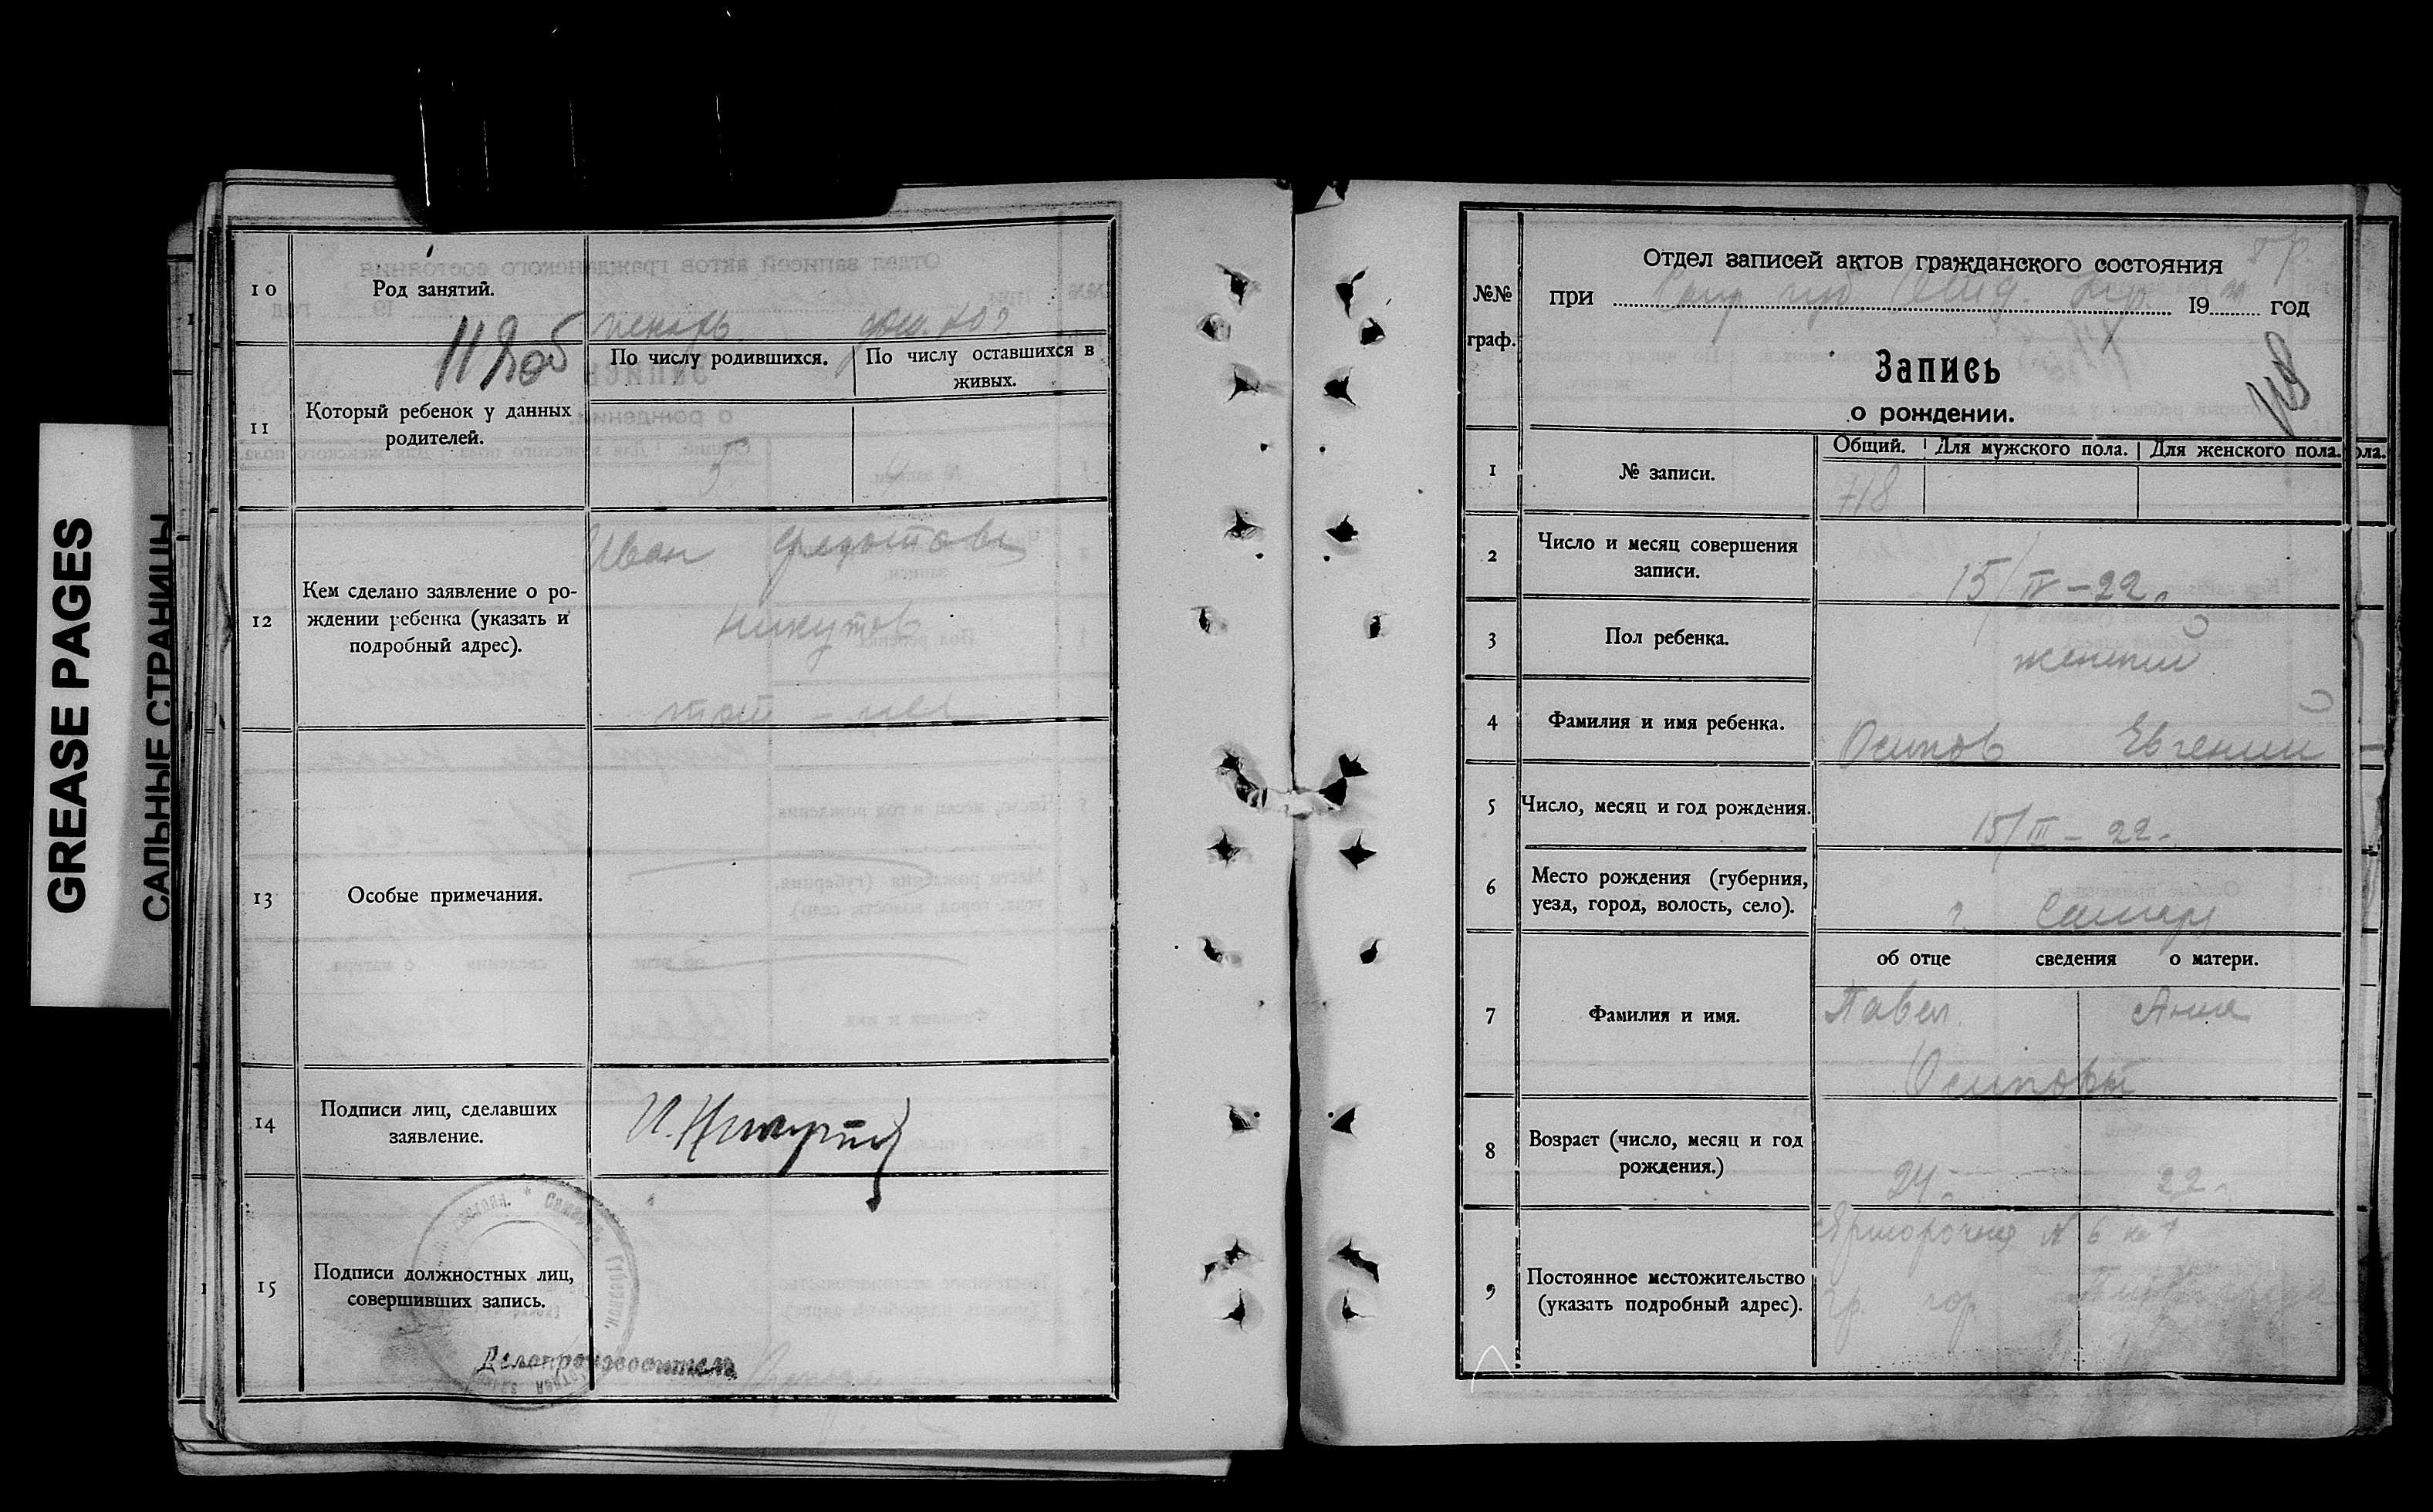 GREASE PAGES
САЛЬНЫЕ СТРАНИЦЫ
10
Род занятий.
пекарь. дом. хоз.
11
Который ребенок у данных
родителей.
По числу родившихся.
По числу оставшихся в
живых.
5
12
Кем сделано заявление о ро-
ждении ребенка (указать и
подробный адрес).
Иван Федотович
Никутов
13
Особые примечания.
14
Подписи лиц, сделавших
заявление.
15
Подписи должностных лиц,
совершивших запись.
Делопроизводитель
№№
граф.
Отдел записей актов гражданского состояния
при 19 год
Запись
о рождении.
1
№ записи.
Общий.
Для мужского пола.
Для женского пола.
718
2
Число и месяц совершения
записи.
15/IV-22.
3
Пол ребенка.
женский
4
Фамилия и имя ребенка.
Осипов Евгений
5
Число, месяц и год рождения.
15/III-22.
6
Место рождения (губерния,
уезд, город, волость, село).
г. Самара
об отце сведения о матери.
7
Фамилия и имя.
Павел
Анна
Осиповы
8
Возраст (число, месяц и год
рождения.)
24.
22.
9
Постоянное местожительство
(указать подробный адрес).
Ярморочная № 6 кв 1
гр. гор.